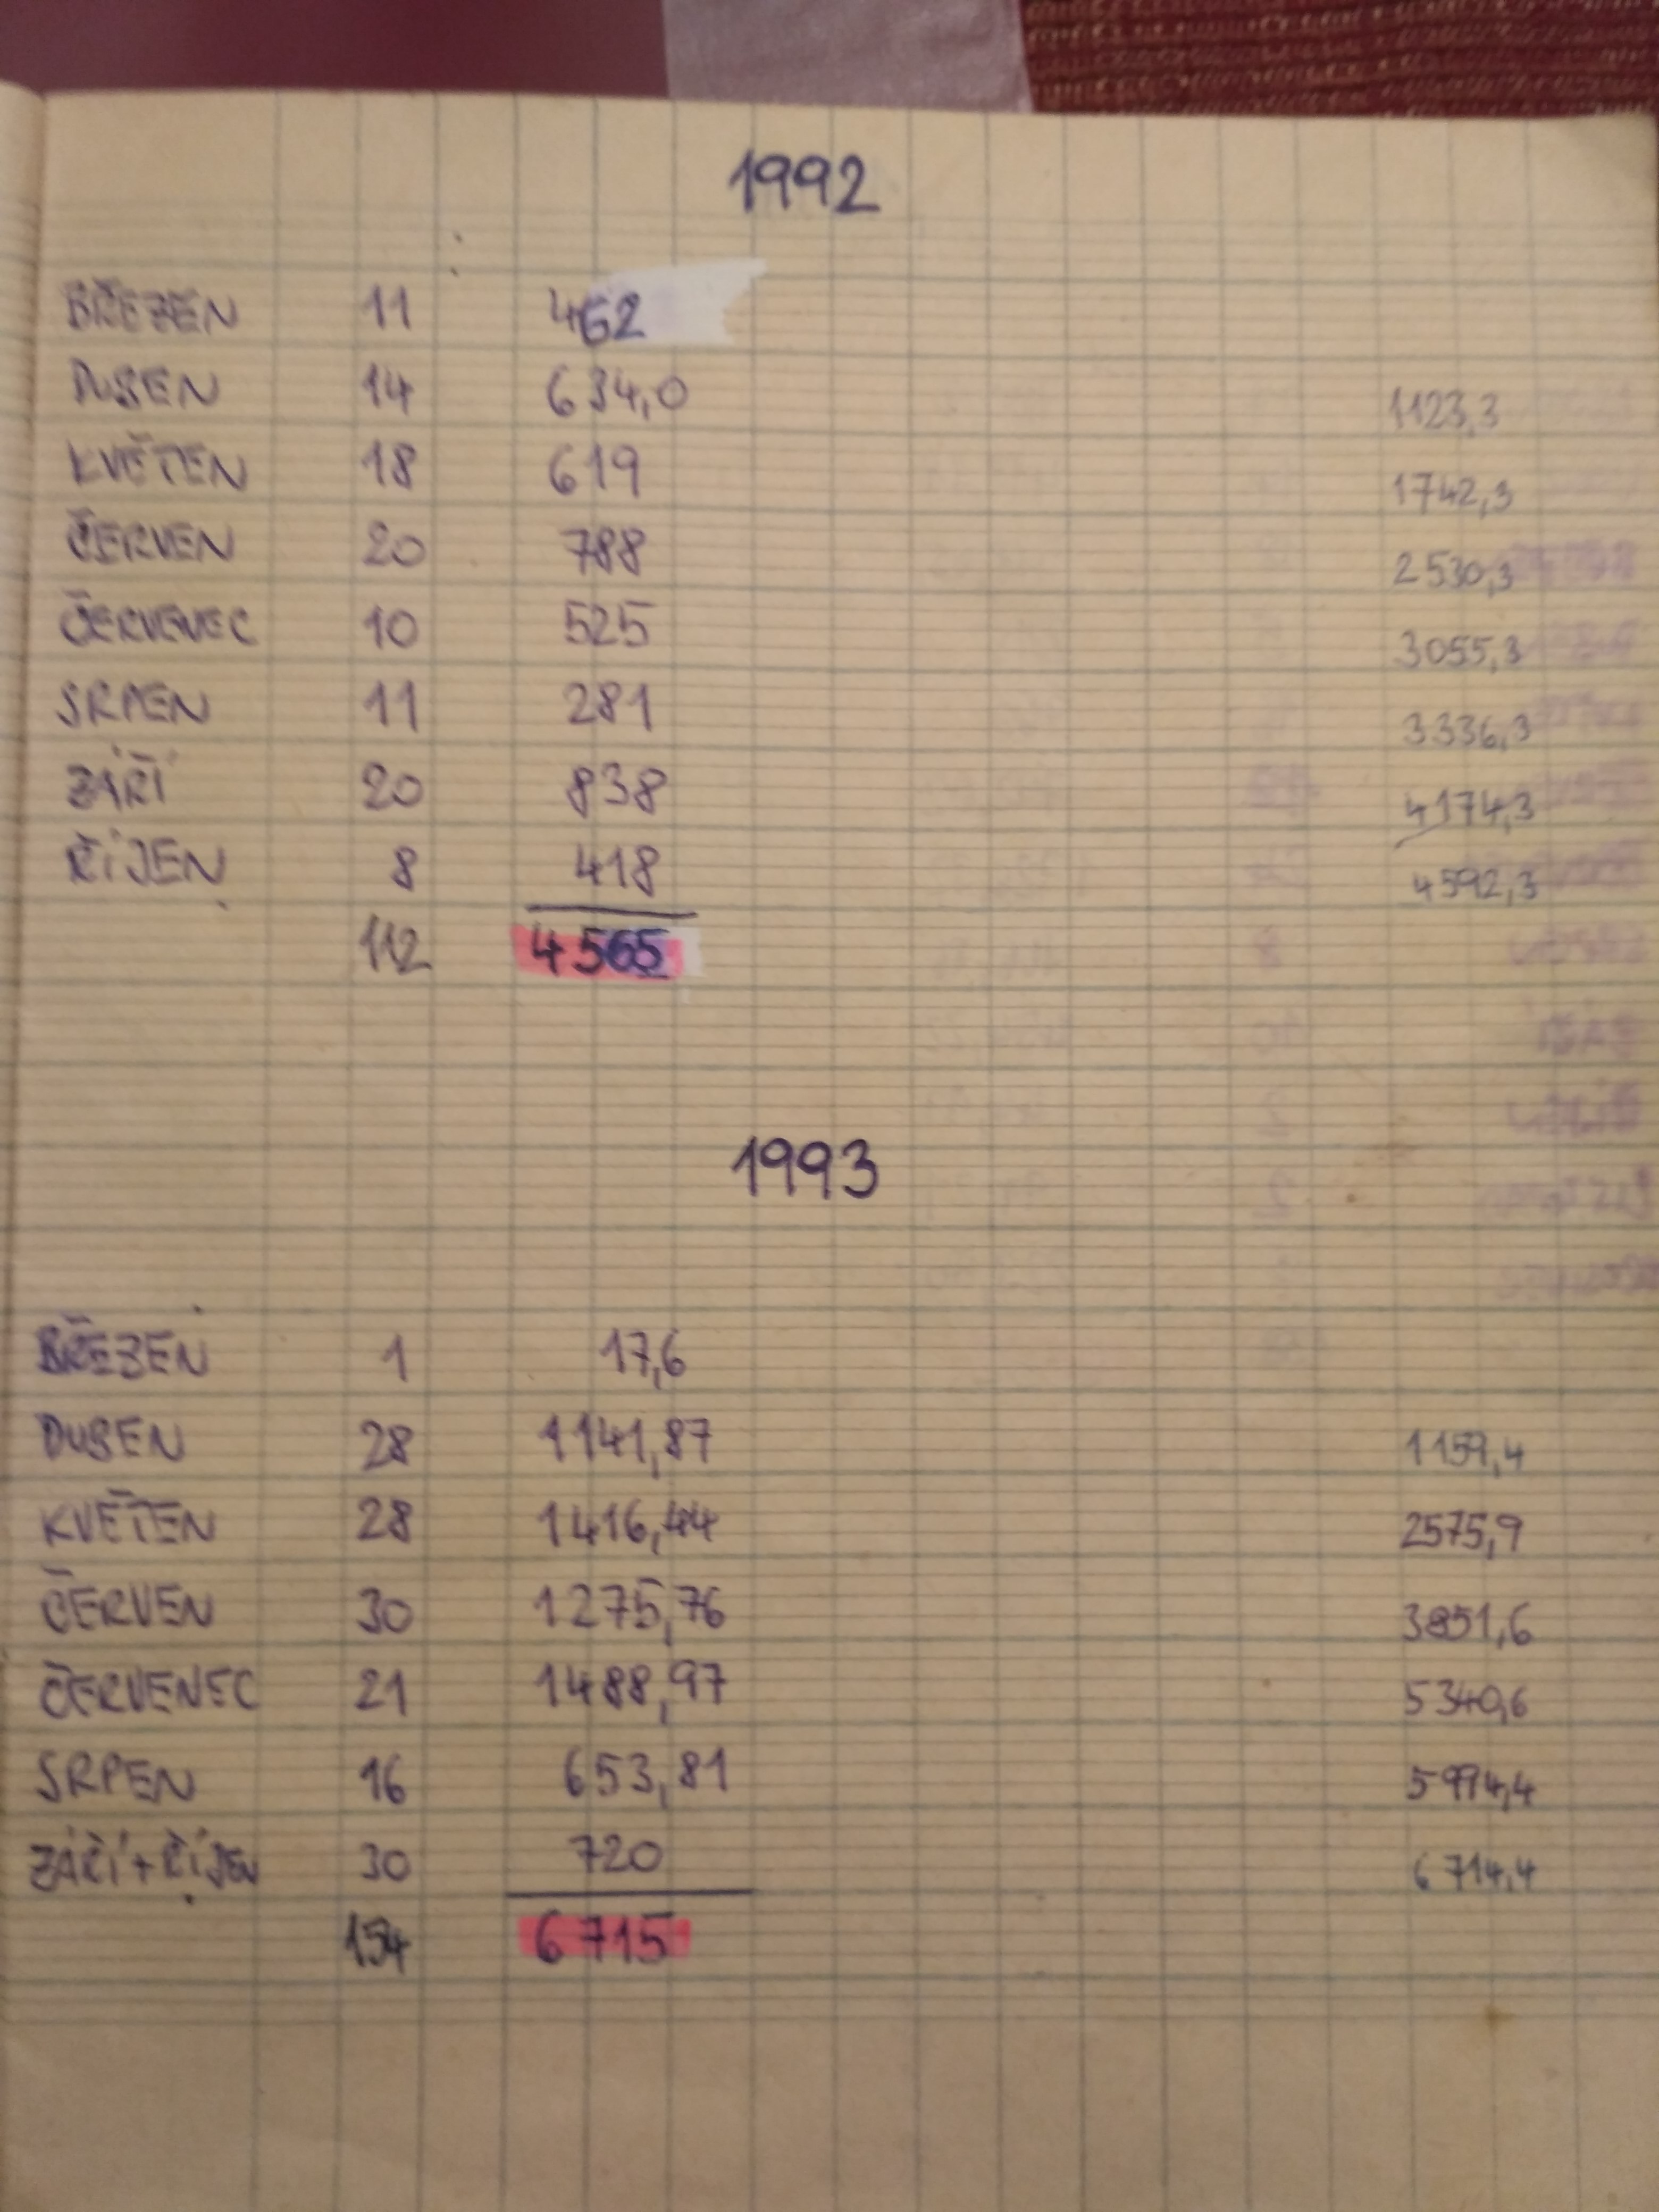 1992
BŘEZEN 11 462
DUBEN 14 634,0 1123,3
KVĚTEN 18 619 1742,3
ČERVEN 20 788 2530,3
ČERVENEC 10 525 3055,3
SRPEN 11 281 3336,3
ZÁŘÍ 20 838 4174,3
ŘÍJEN 8 418 4592,3
112 4565
1993
BŘEZEN 1 17,6
DUBEN 28 1141,87 1159,4
KVĚTEN 28 1416,44 2575,9
ČERVEN 30 1275,76 3851,6
ČERVENEC 21 1488,97 5340,6
SRPEN 16 653,81 5994,4
ZÁŘÍ+ŘÍJEN 30 720 6714,4
154 6715